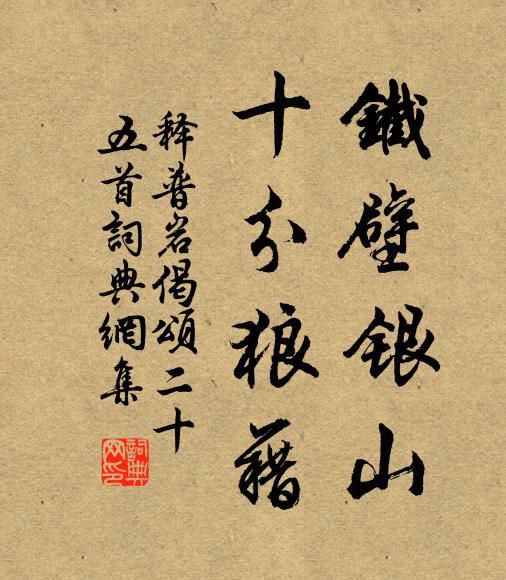 鐵壁銀山
十分狼藉
释普岩偈頌二十
五首詞典網集
詞典
网印